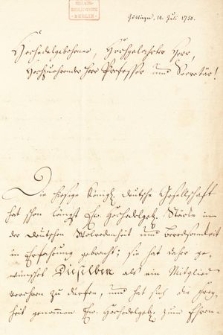 Göttingen, 12. Jul. 1750.
Hochedelgebohrner, Hochgelehrter Herr,
Hochzuehrender Herr Professor und Secretär!
Die hiesige Königl. deutsche Gesellschaft
hat schon längst Ew. Hochedelgeb. Stärke in
der deutschen Wohlredenheit und Beredsamkeit
in Erfahrung gebracht; sie hat daher ge
wünschet Dieselben als ein Mitglied
verehren zu dürfen, und hat sich die
heit genommen Ew. Hochedelgeb. zum Ehren